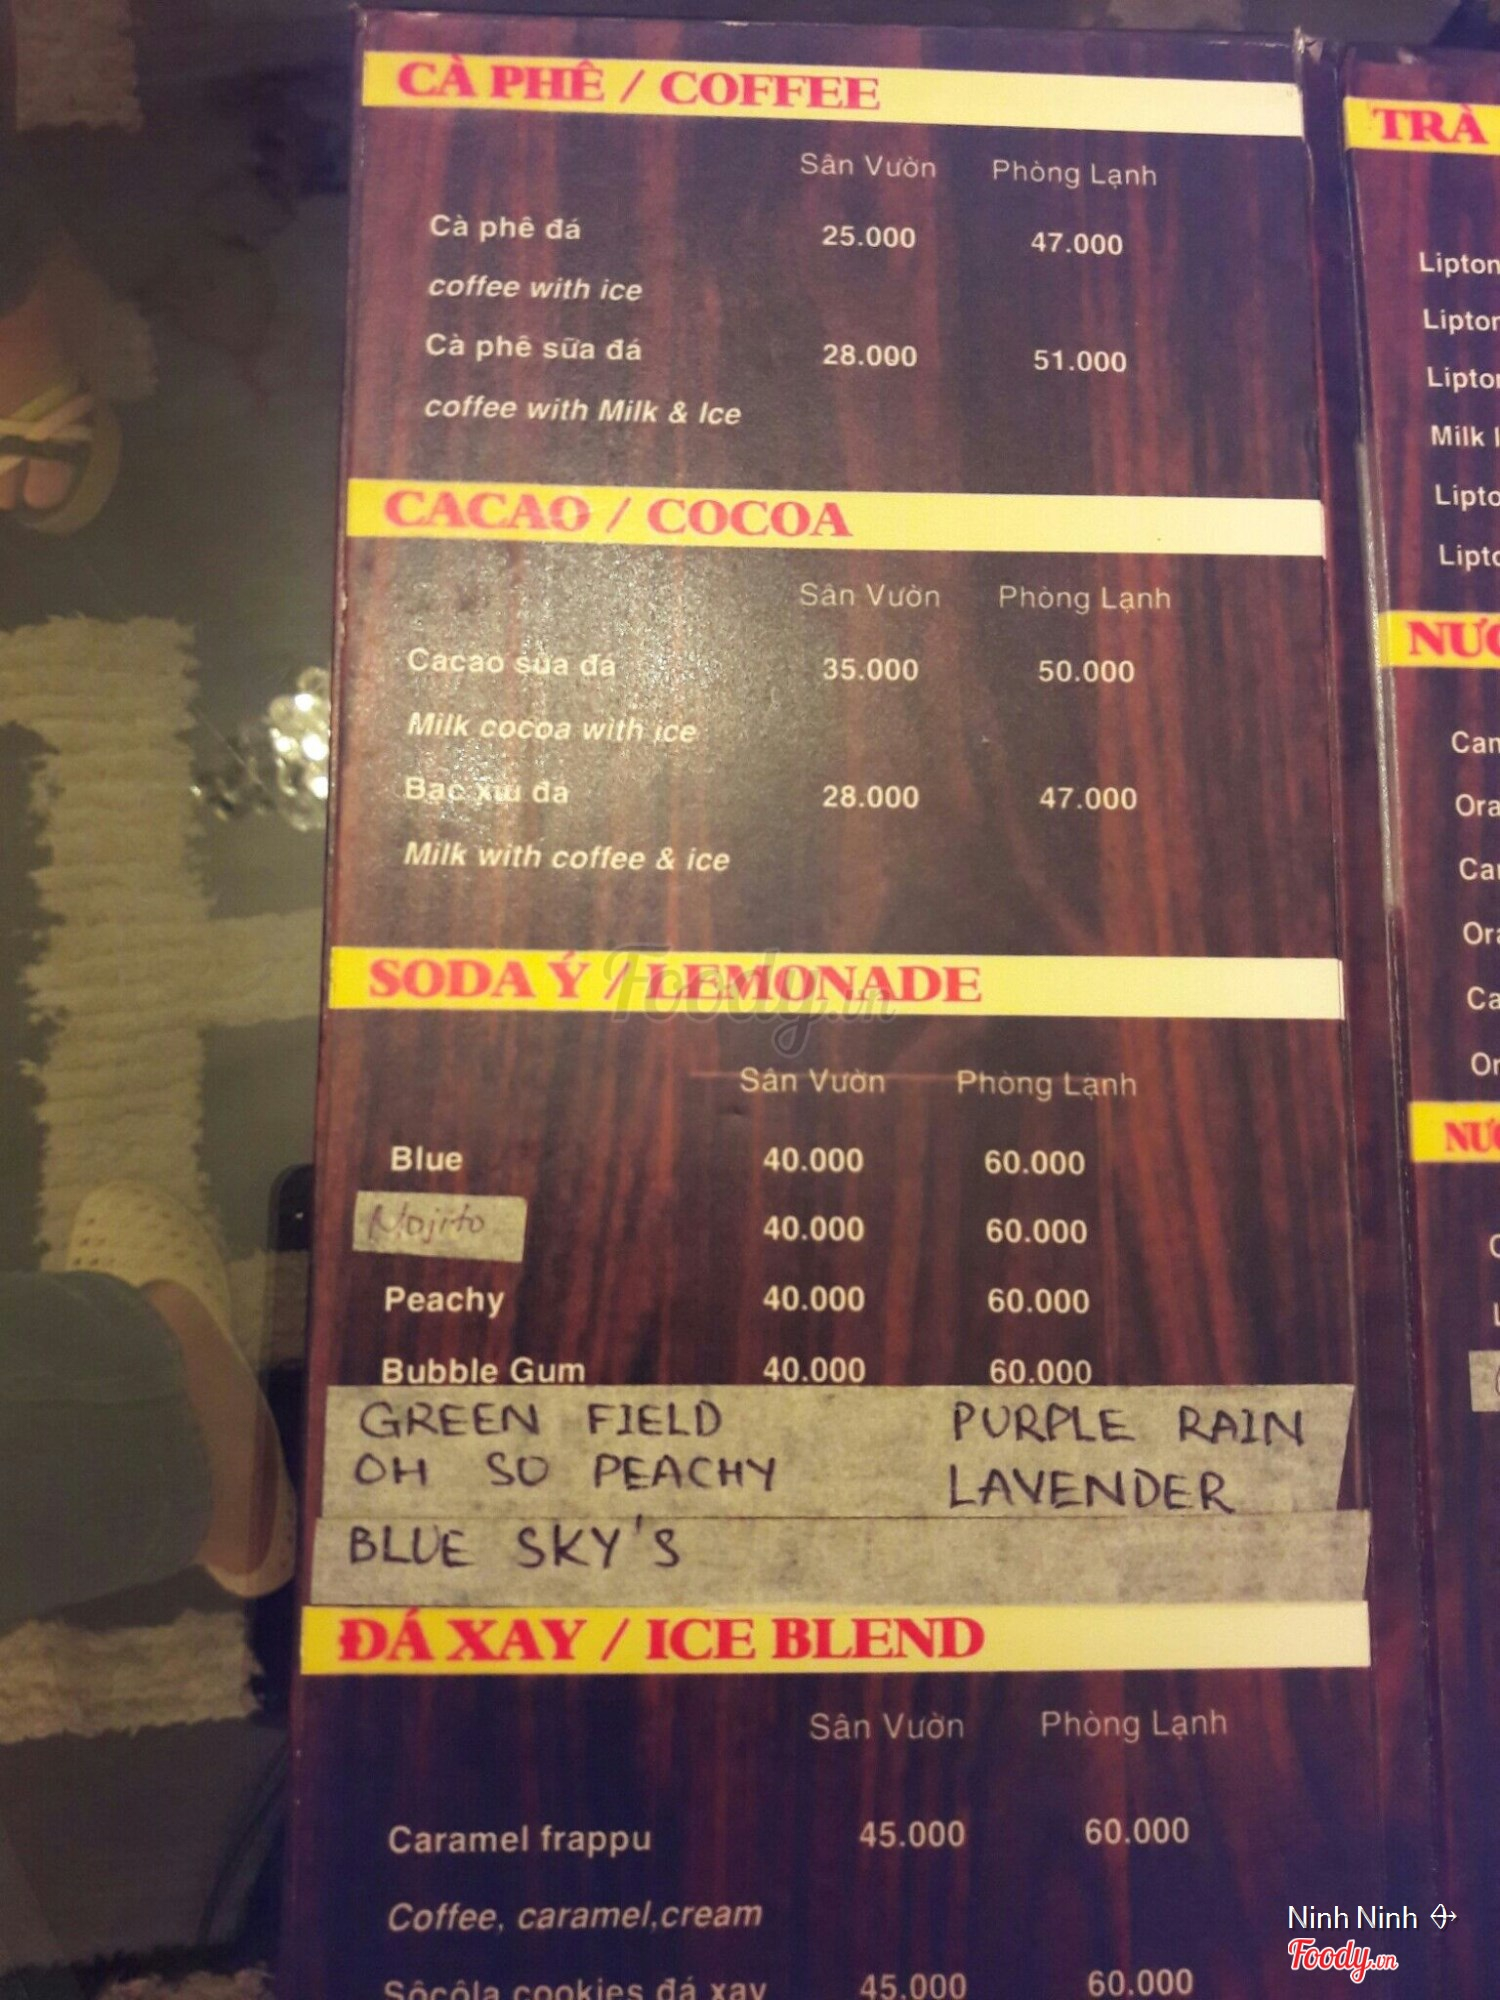 CÀ PHÊ / COFFEE
Sân Vườn Phòng Lạnh
Cà phê đá 25.000 47.000
coffee with ice
Cà phê sữa đá 28.000 51.000
coffee with Milk & Ice
CACAO / COCOA
Sân Vườn Phòng Lạnh
Cacao sữa đá 35.000 50.000
Milk cocoa with ice
Bạc xỉu đá 28.000 47.000
Milk with coffee & ice
SODA Ý / LEMONADE
Sân Vườn Phòng Lạnh
Blue 40.000 60.000
Mojito 40.000 60.000
Peachy 40.000 60.000
Bubble Gum 40.000 60.000
GREEN FIELD PURPLE RAIN
OH SO PEACHY LAVENDER
BLUE SKY'S
ĐÁ XAY / ICE BLEND
Sân Vườn Phòng Lạnh
Caramel frappu 45.000 60.000
Coffee, caramel,cream
Sôcôla cookies đá xay 45.000 60.000
TRÀ
Lipton
Lipton
Lipton
Milk
Foody.vn
Ninh Ninh
Foody.vn